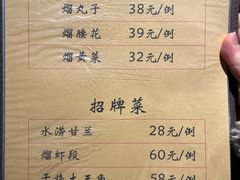 熘丸子 38元/例
熘腰花 39元/例
熘黄菜 32元/例
招牌菜
水涝甘兰 28元/例
熘虾段 60元/例
干烧大王鱼 58元/例